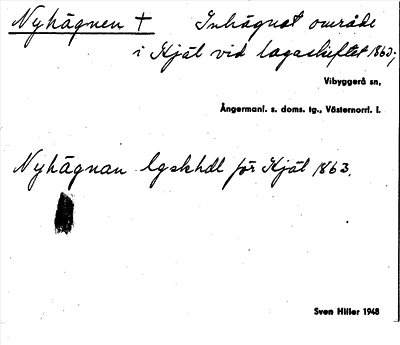 Nyhägnen † Inhägnat område
i Kjäl vid lagaskiftet 1863;
Vibyggerå sn,
Ångermanl. s. doms. tg., Västernorrl. l.
Nyhägnan lgskhdl för Kjäl 1863.
Sven Hiller 1948